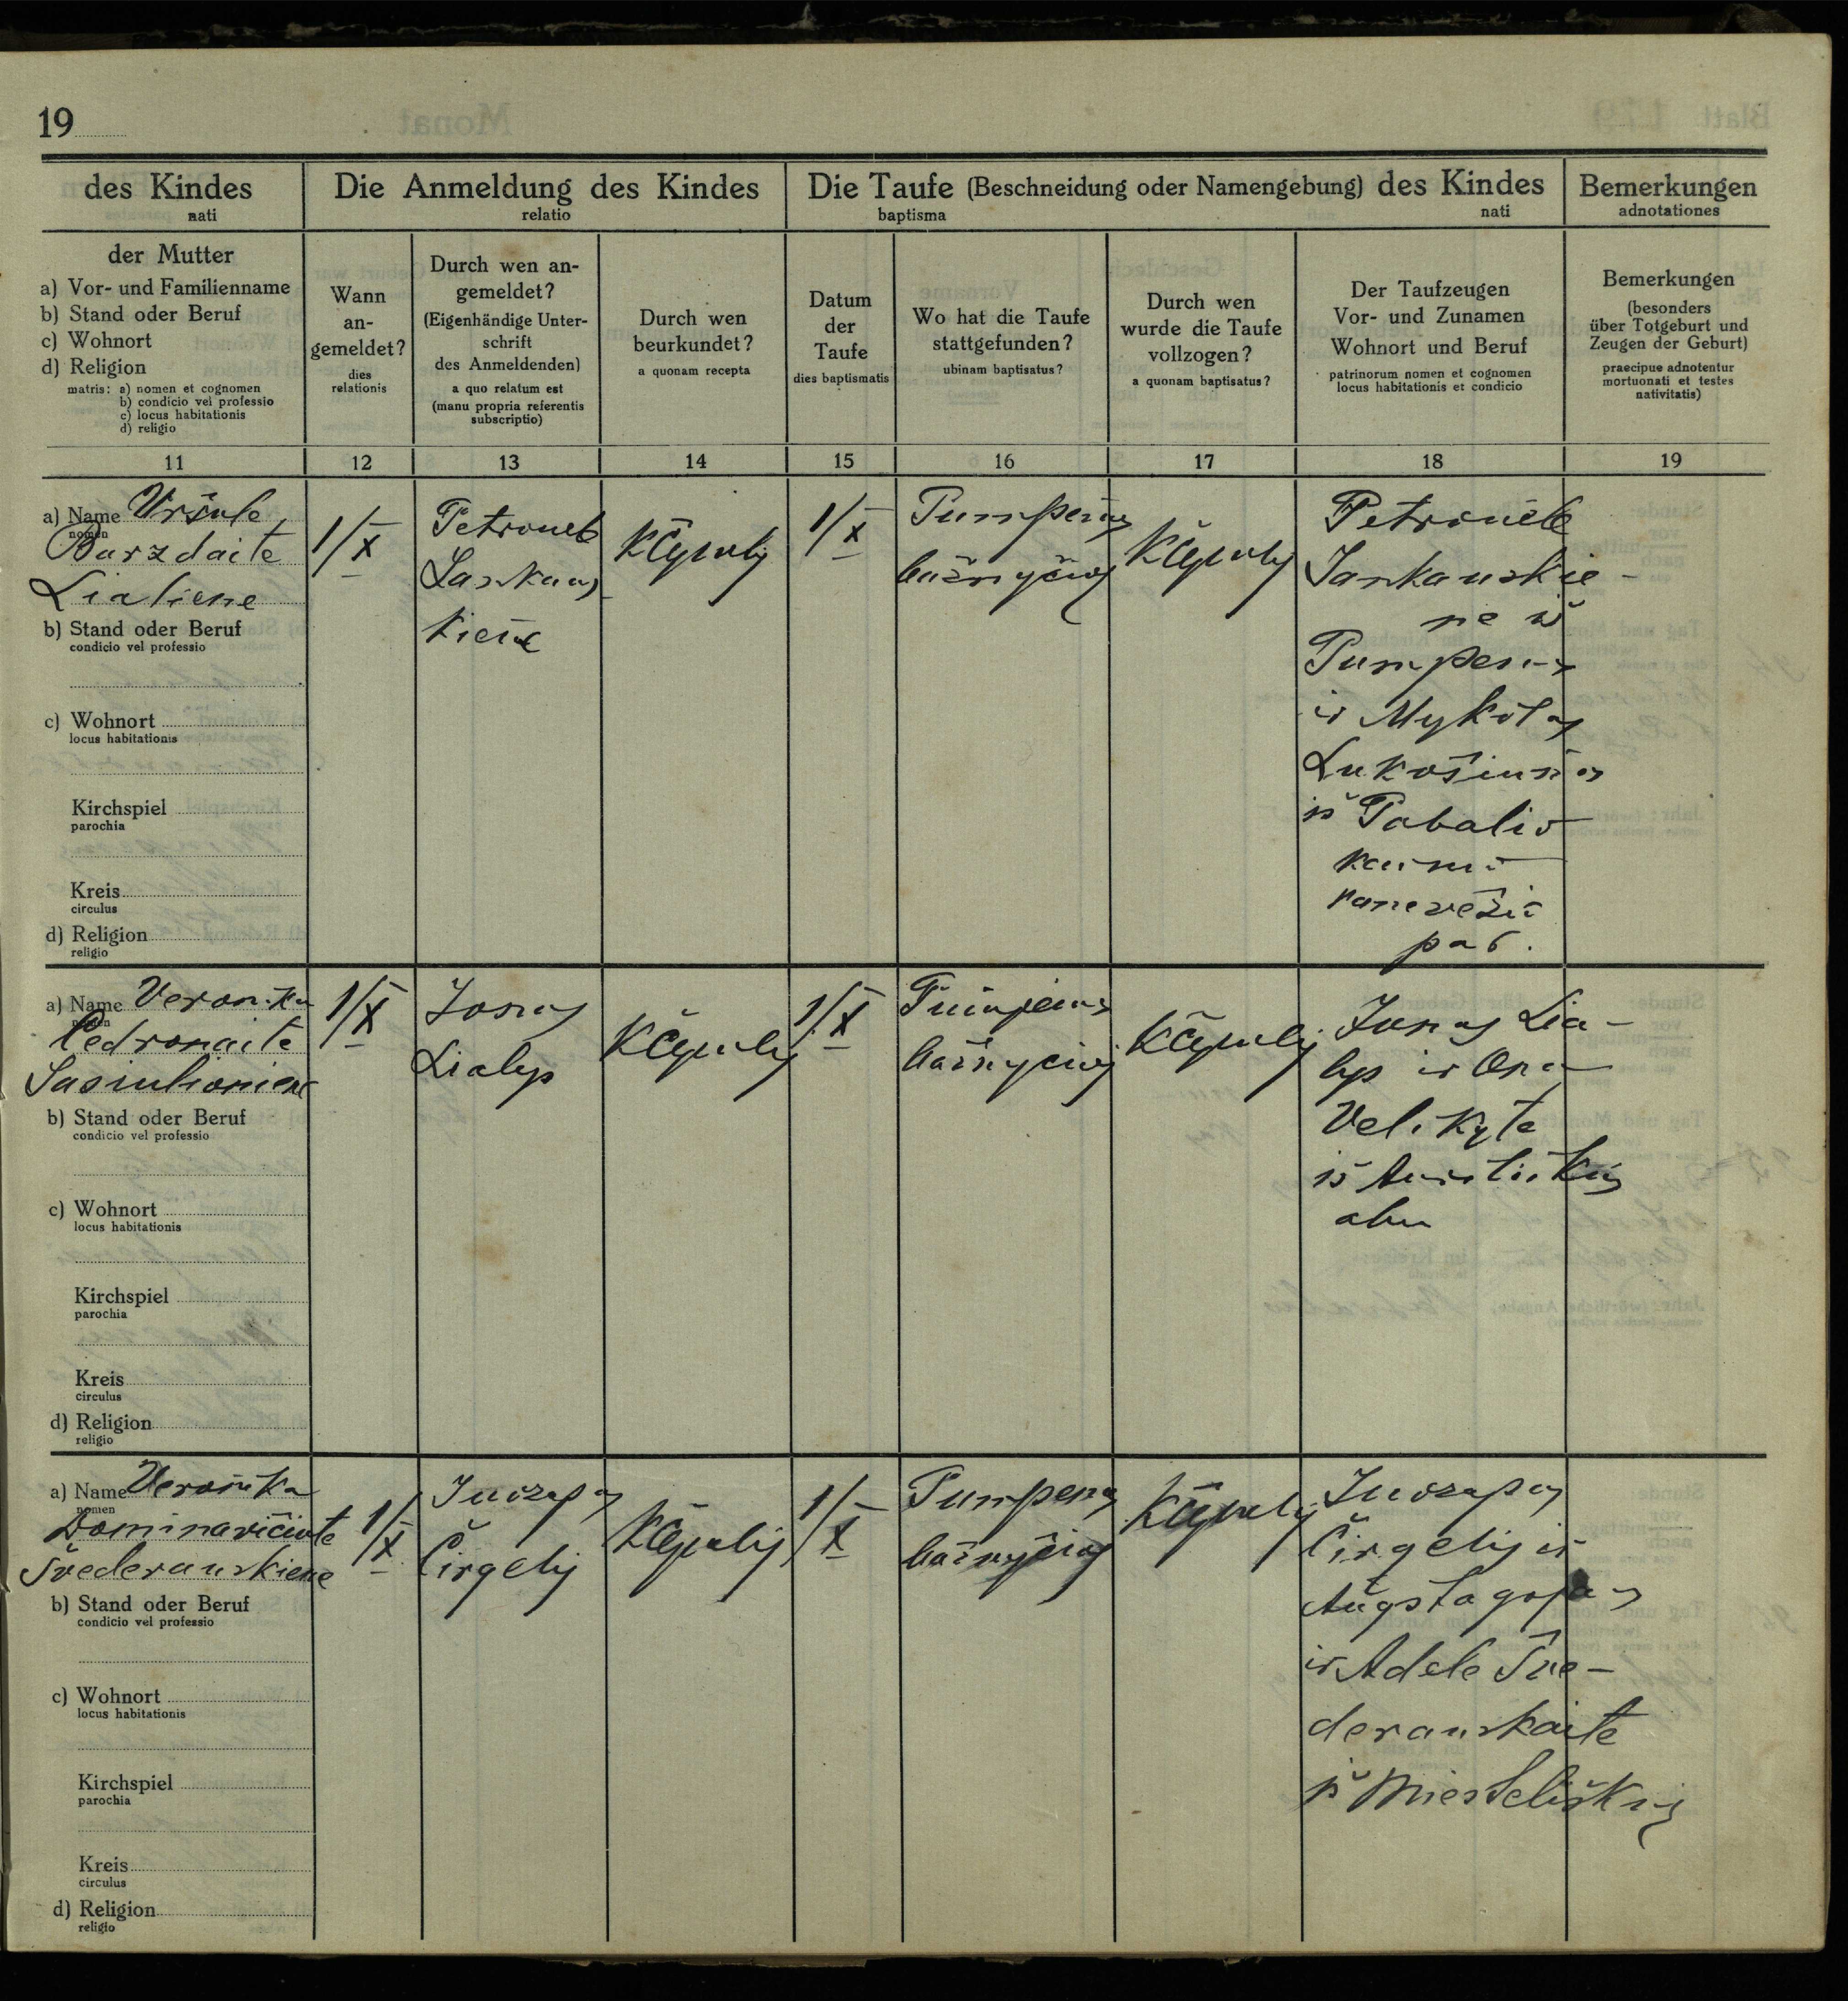 19
des Kindes
nati
Die Anmeldung des Kindes
relatio
Die Taufe (Beschneidung oder Namengebung) des Kindes
baptisma nati
Bemerkungen
adnotationes
der Mutter
a) Vor- und Familienname
b) Stand oder Beruf
c) Wohnort
d) Religion
matris: a) nomen et cognomen
b) condicio vel professio
c) locus habitationis
d) religio
Wann
an-
gemeldet?
dies
relationis
Durch wen an-
gemeldet?
(Eigenhändige Unter-
schrift
des Anmeldenden)
a quo relatum est
(manu propria referentis
subscriptio)
Durch wen
beurkundet?
a quonam recepta
Datum
der
Taufe
dies baptismatis
Wo hat die Taufe
stattgefunden?
ubinam baptisatus?
Durch wen
wurde die Taufe
vollzogen?
a quonam baptisatus?
Der Taufzeugen
Vor- und Zunamen
Wohnort und Beruf
patrinorum nomen et cognomen
locus habitationis et condicio
Bemerkungen
(besonders
über Totgeburt und
Zeugen der Geburt)
praecipue adnotentur
mortuonati et testes
nativitatis)
11 12 13 14 15 16 17 18 19
a) Name Uršule
nomen
Barzdaite
Lialiene
b) Stand oder Beruf
condicio vel professio
c) Wohnort
locus habitationis
Kirchspiel
parochia
Kreis
circulus
d) Religion
religio
1/X
Petronele
kiene
1/X
Petronele
Jankauskie-
ne iš
ir Mykolas
Lukošiunas
iš
par.
a) Name Veronika
nomen
Pedronaite
b) Stand oder Beruf
condicio vel professio
c) Wohnort
locus habitationis
Kirchspiel
parochia
Kreis
circulus
d) Religion
religio
1/X
Jonas
Lialys
1/X
Jonas Lia-
lys ir Ona
Velikyte
iš
a) Name Veronika
nomen
Dominavičiute
Švederauskiene
b) Stand oder Beruf
condicio vel professio
c) Wohnort
locus habitationis
Kirchspiel
parochia
Kreis
circulus
d) Religion
religio
1/X
Juozapas
Čirgelis
1/X
Juozapas
Čirgelis iš
ir Adele Šve-
derauskaite
iš